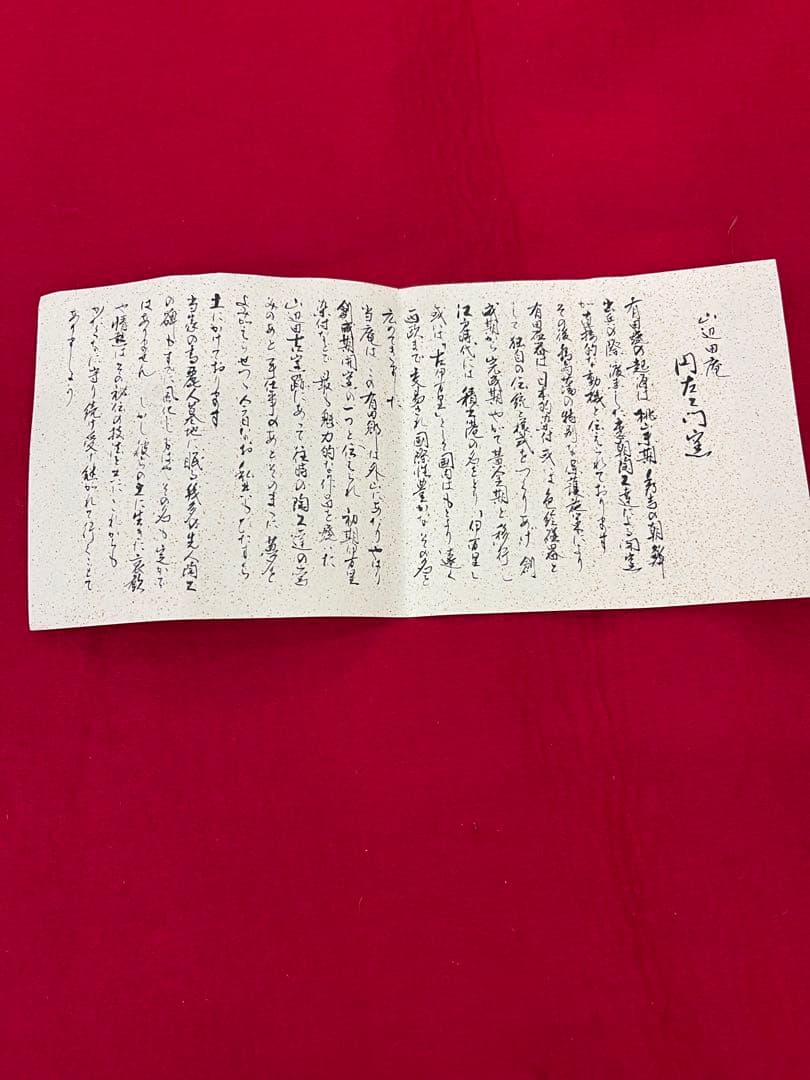 山辺田庵
円左ヱ門窯
有田磁器の起源は 桃山末期 秀吉の朝鮮
出兵の際 渡来した李朝陶工達による開窯
が直接的な動機と伝えられております
その後 鍋島藩の特別な保護施策により
有田磁器は日本的な 或は色絵磁器と
して独自の伝統と様式をつくりあげ 創
成期から完成期 やがて黄金期と移行し
江戸時代には 積出港の名をとり 伊万里
或は 古伊万里として 国内はもとより 遠く
西欧まで交易され 国際性豊かな その名を
当庵は この有田郷
創成期開窯の一つと伝えられ 初期伊万里
染付などで 最も魅力的な作品を焼いた
山辺田古窯跡にあって 往時の陶工達の窯
のあと 手仕事のあとそのままに 夢を
よみがえらせつつ 今日なお 私どもも
土にかけております
当家の高麗人墓地に眠る 陶工
の碑も すでに風化し 今はその名も定かで
はありません しかし彼らの土に生きた哀歓
や情熱は その秘伝の技法と共に これからも
守り続け受け継がれて行くことで
ありましょう